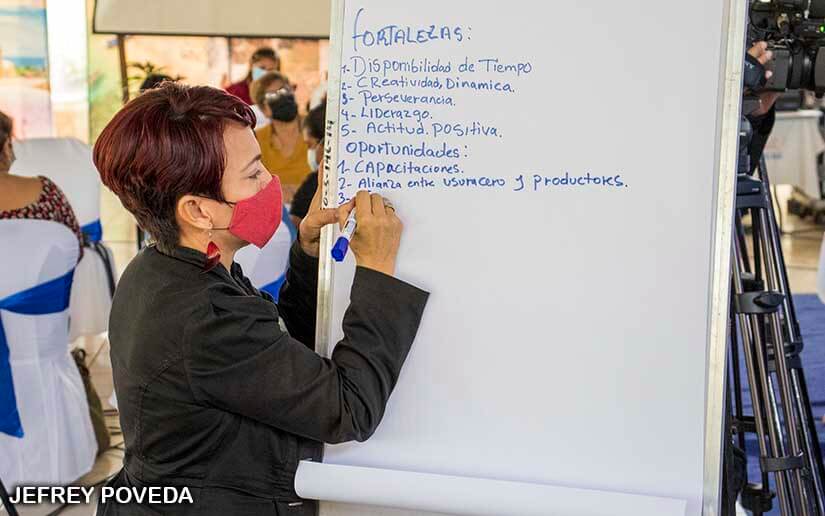 FORTALEZAS:
1- Disponibilidad de Tiempo
2- CReatividad, Dinamica.
3- Perseverancia.
4- LIDerazgo.
5- Actitud. POSitiva.
OPortunidades:
1- CAPACitaciones.
2- Alianza entre usuracero y productores.
3-
JEFREY POVEDA